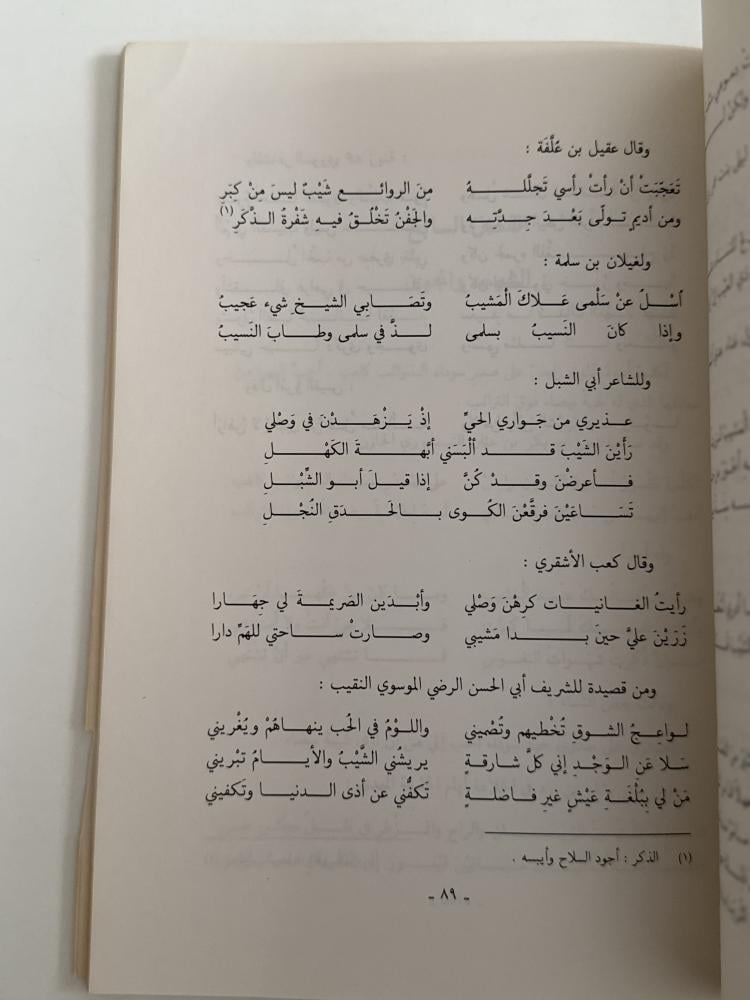 وقال عقيل بن عُلَّفَة :
تَعَجّبَتْ أنْ رأتْ رأسي تَجلَّلــــهُ مِنَ الروائــع شَيْبٌ ليسَ مِنْ كِبَرِ
ومن أديمٍ تولّى بَعْـدَ جِـدَّتِـه والجَفْنُ تَخْلُـقُ فيهِ شَفْرةُ الـذَّكَرِ(١)
ولغيلان بن سلمة :
اَسْـلُ عنْ سَلْمى عَـلاكَ الْمَشيبُ وتَصَـابِي الشيـخِ شيء عَجيبُ
وإذا كانَ النَسيبُ بسلمى لــذَّ في سلمى وطـابَ النَسيبُ
وللشاعر أبي الشبل :
عـذيري من جَواري الحيِّ إذْ يَـزْهَـدْنَ في وَصْلي
رَأَيْنَ الشَيْبَ قــد ألْبَسَني أبَّهــةَ الكَهْــلِ
فـأعرضْنَ وقـدْ كُنَّ إذا قيـلَ أبـو الشِّبْـلِ
تَسَـاعَيْنَ فرقَّعْنَ الكُـوى بـالحَـدَقِ النُجْـلِ
وقال كعب الأشقري :
رأيتُ الغـانيـات كرِهْنَ وَصْلي وأبْـدَين الصَريمـةَ لي جِهَـارا
زَرَيْنَ عليَّ حينَ بــدا مَشيبي وصـارتْ سـاحتي للهَمِّ دارا
ومن قصيدة للشريف أبي الحسن الرضي الموسوي النقيب :
لـواعِـجُ الشـوقِ تُخْطيهم وتُصْميني واللوْمُ في الحُب ينهـاهُمْ ويُغْريني
سَـلا عَنِ الـوَجْـدِ إني كلَّ شارقةٍ يريشُني الشَّيْبُ والأيـامُ تبْريني
مَنْ لي بِبُلْغَـةِ عَيْشٍ غيرِ فـاضلـةٍ تَكفُّني عن أذى الـدنيـا وتَكفيني
(١) الذكر : أجود السلاح وأيبسه .
- ٨٩ -